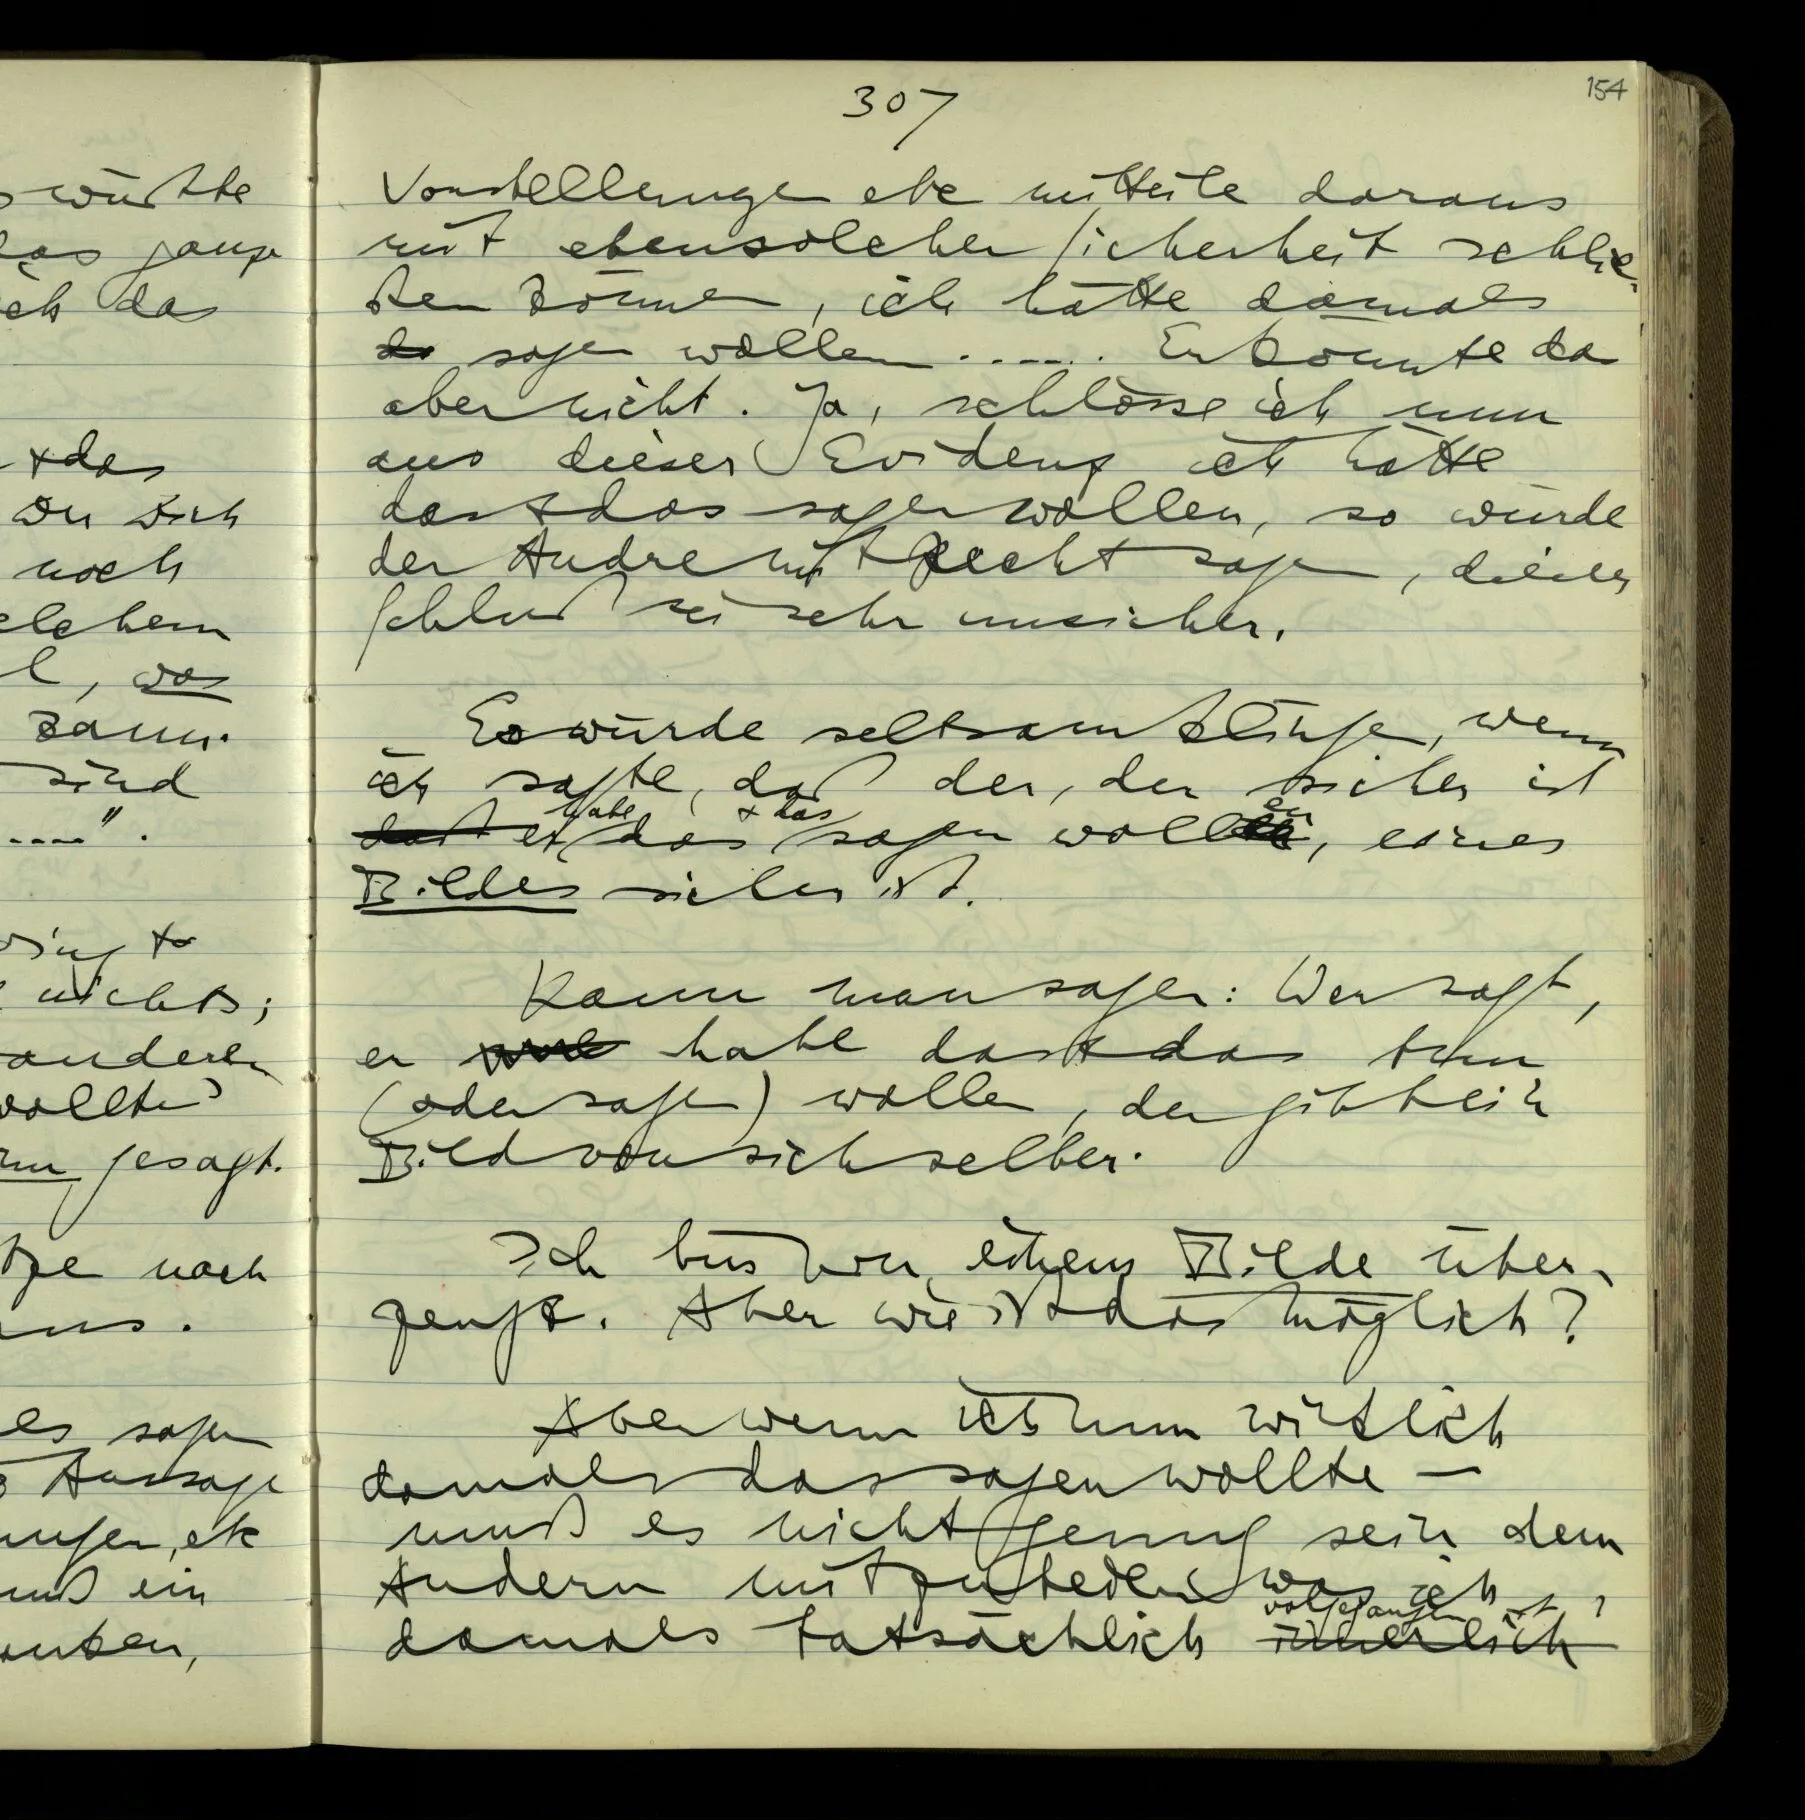 wüßte
das ganze
ich das
+ das
Du Dich
noch
welchem
l, was
kann.
sind
....".
nichts;
anderen
wollte
gesagt.
nach
aus.
es sagen
Aussage
ungen, etc
muß ein
anken,
307
154
Vorstellungen etc mitteile daraus
mit ebensolcher Sicherheit schlie-
ßen können, ich hätte damals
da sagen wollen ...... Er könnte da
aber nicht. Ja, schlösse ich nun
aus dieser Evidenz ich hätte
das + das sagen wollen, so würde
der Andre mit Recht sagen, dieser
Schluß sei sehr unsicher.
Es würde seltsam klingen, wenn
ich sagte, daß der, der sicher ist
habe + das en
daß er das sagen wollte, eines
Bildes sicher ist.
Kann man sagen: Wer sagt,
er habe das + das tun
(oder sagen) wollen, der gibt ein
Bild von sich selber.
Ich bin von einem Bilde über-
zeugt. Aber wie ist das möglich?
Aber wenn ich nun wirklich
damals das sagen wollte —
muß es nicht genug sein dem
Andern mitzuteilen was ich
vorgegangen ist ?
damals tatsächlich innerlich